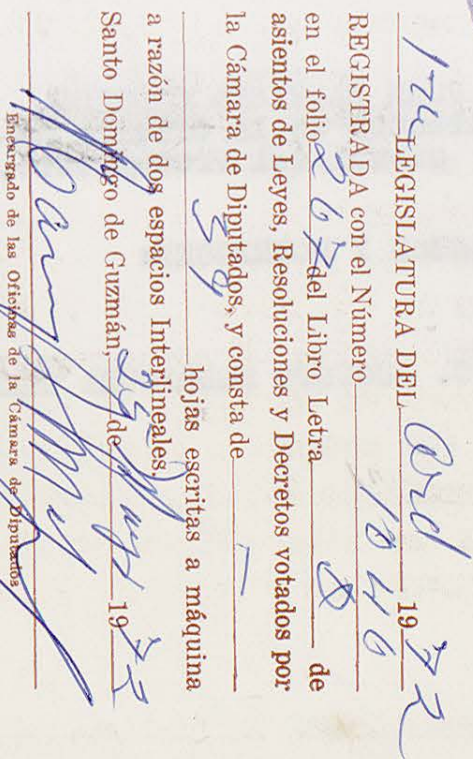 1ra LEGISLATURA DEL Ord 1972
REGISTRADA con el Número 1046
en el folio 267 del Libro Letra de
asientos de Leyes, Resoluciones y Decretos votados por
la Cámara de Diputados, y consta de
hojas escritas a máquina
a razón de dos espacios Interlineales.
Santo Domingo de Guzmán, de 1972
Encargado de las Oficinas de la Cámara de Diputados